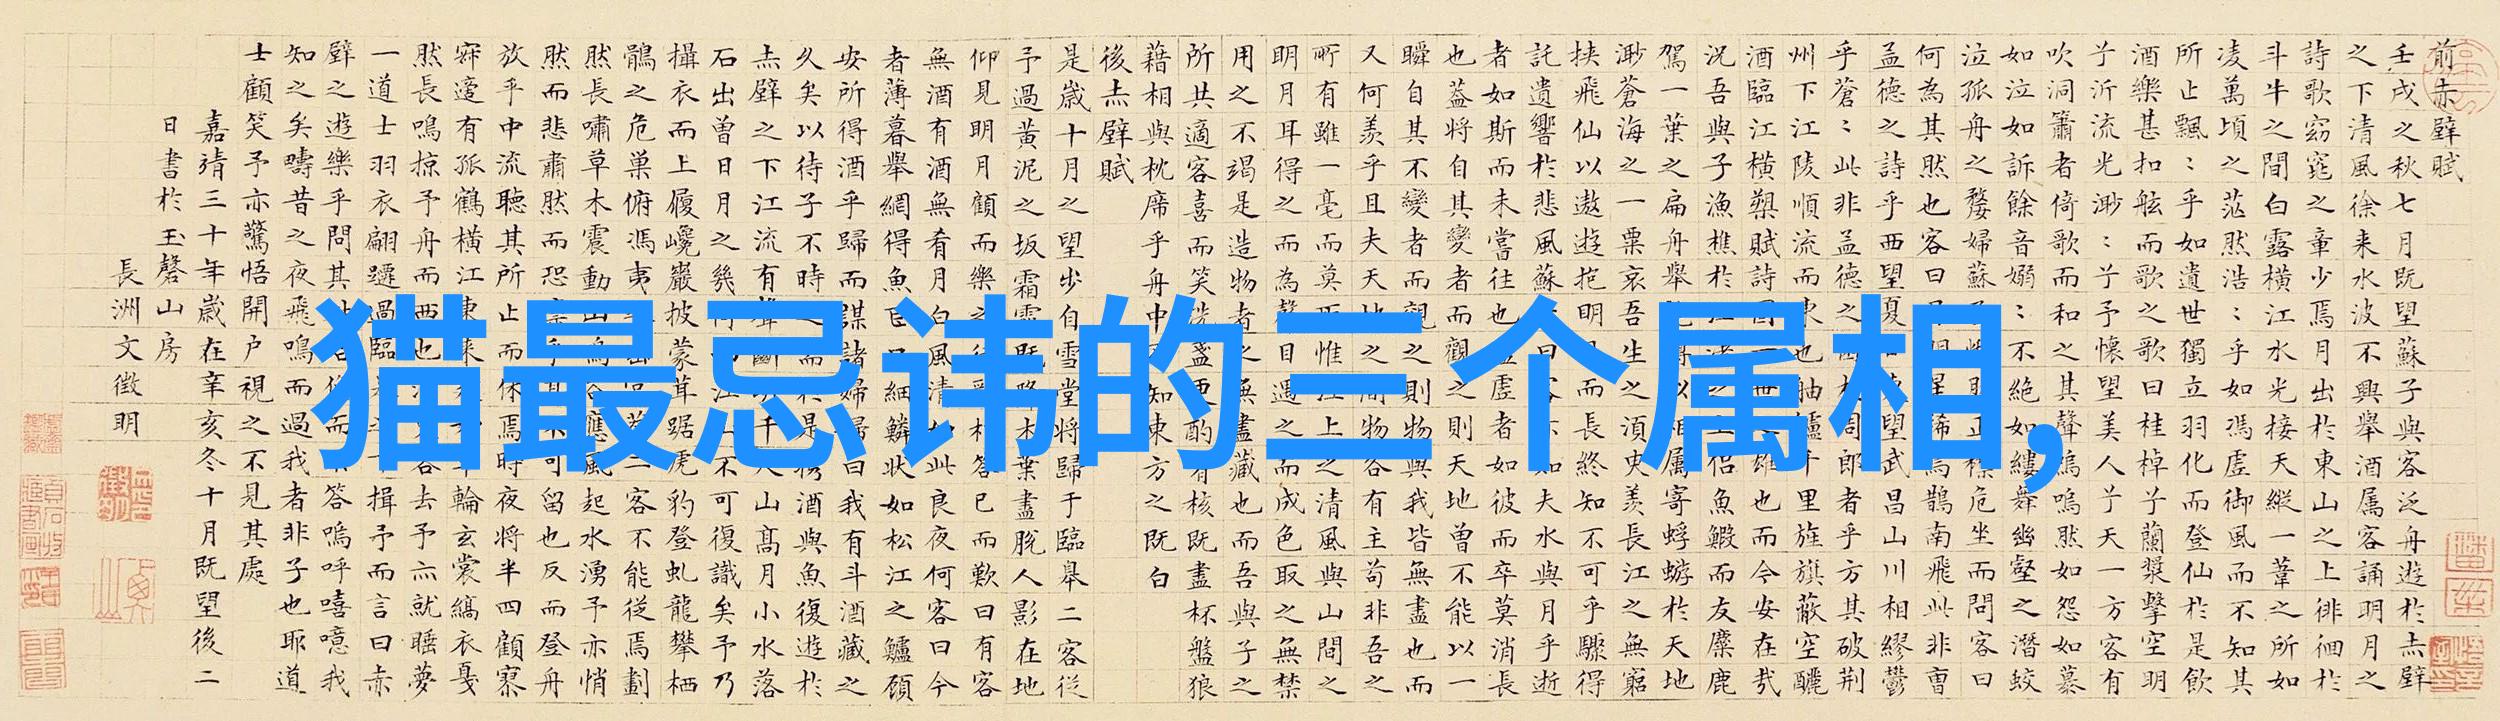 猫最忌讳的三个属相,
前赤壁賦
壬戌之秋七月既望蘇子與客泛舟遊於赤壁
之下清風徐来水波不興舉酒属客誦明月之
詩歌窈窕之章少焉月出於東山之上徘徊於
斗牛之間白露横江水光接天縱一葦之所如
凌萬頃之茫然浩〻乎如馮虚御風而不知其
所止飄〻乎如遺世獨立羽化而登仙於是飲
酒樂甚扣舷而歌之歌曰桂棹兮蘭槳擊空明
兮泝流光渺〻兮予懷望美人兮天一方客有
吹洞簫者倚歌而和之其聲嗚嗚然如怨如慕
如泣如訴餘音嫋〻不絶如縷舞幽壑之潛蛟
泣孤舟之嫠婦蘇危坐而問客曰
何為其然也客曰烏鵲南飛此非曹
孟德之詩乎西望夏望武昌山川相繆鬱
乎蒼〻此非孟德之周郎者乎方其破荆
州下江陵順流而東也舳艫千里旌旗蔽空釃
酒臨江横槊賦詩雄也而今安在哉
況吾與子漁樵於侣魚鰕而友麋鹿
駕一葉之扁舟舉属寄蜉蝣於天地
渺蒼海之一粟哀吾生之須臾羡長江之無窮
挾飛仙以遨遊抱明月而長終知不可乎驟得
託遺響於悲風蘇夫水與月乎逝
者如斯而未嘗往也盈虚者如彼而卒莫消長
也葢將自其變者而觀之則天地曾不能以一
瞬自其不變者而觀之則物與我皆無盡也而
又何羨乎且夫天地之間物各有主苟非吾之
所有雖一毫而莫之清風與山間之
明月耳得之而為聲目遇之而成色取之無禁
用之不竭是造物者之無盡藏也而吾與子之
所共適客喜而笑洗盞更酌肴核既盡杯盤狼
藉相與枕席乎舟中知東方之既白
後赤壁賦
是歲十月之望步自雪堂將歸于臨皋二客從
予過黄泥之坂霜露既木葉盡脱人影在地
仰見明月顧而樂之答已而歎曰有客
無酒有酒無肴月白風清如此良夜何客曰今
者薄暮舉網得魚巨口細鱗狀如松江之鱸顧
安所得酒乎歸而謀諸婦婦曰我有斗酒藏之
久矣以待子不時酒與魚復遊於
赤壁之下江流有聲斷山高月小水落
石出曾日月之幾何不可復識矣予乃
攝衣而上履巉巖披蒙茸踞虎豹登虬龍攀栖
鶻之危巢俯馮夷二客不能從焉劃
然長嘯草木震動山鳴谷應風起水湧予亦悄
然而悲肅然而恐可留也反而登舟
放乎中流聽其所止而休焉時夜將半四顧寂
寥適有孤鶴横江東來輪玄裳縞衣戛
然長鳴掠予舟而西也客去予亦就睡夢
一道士羽衣翩躚過臨揖予而言曰赤
壁之遊樂乎問其答嗚呼噫嘻我
知之矣疇昔之夜飛鳴而過我者非子也耶道
士顧笑予亦驚悟開户視之不見其處
嘉靖三十年歲在辛亥冬十月既望後二
日書於玉磬山房
長洲文徵明